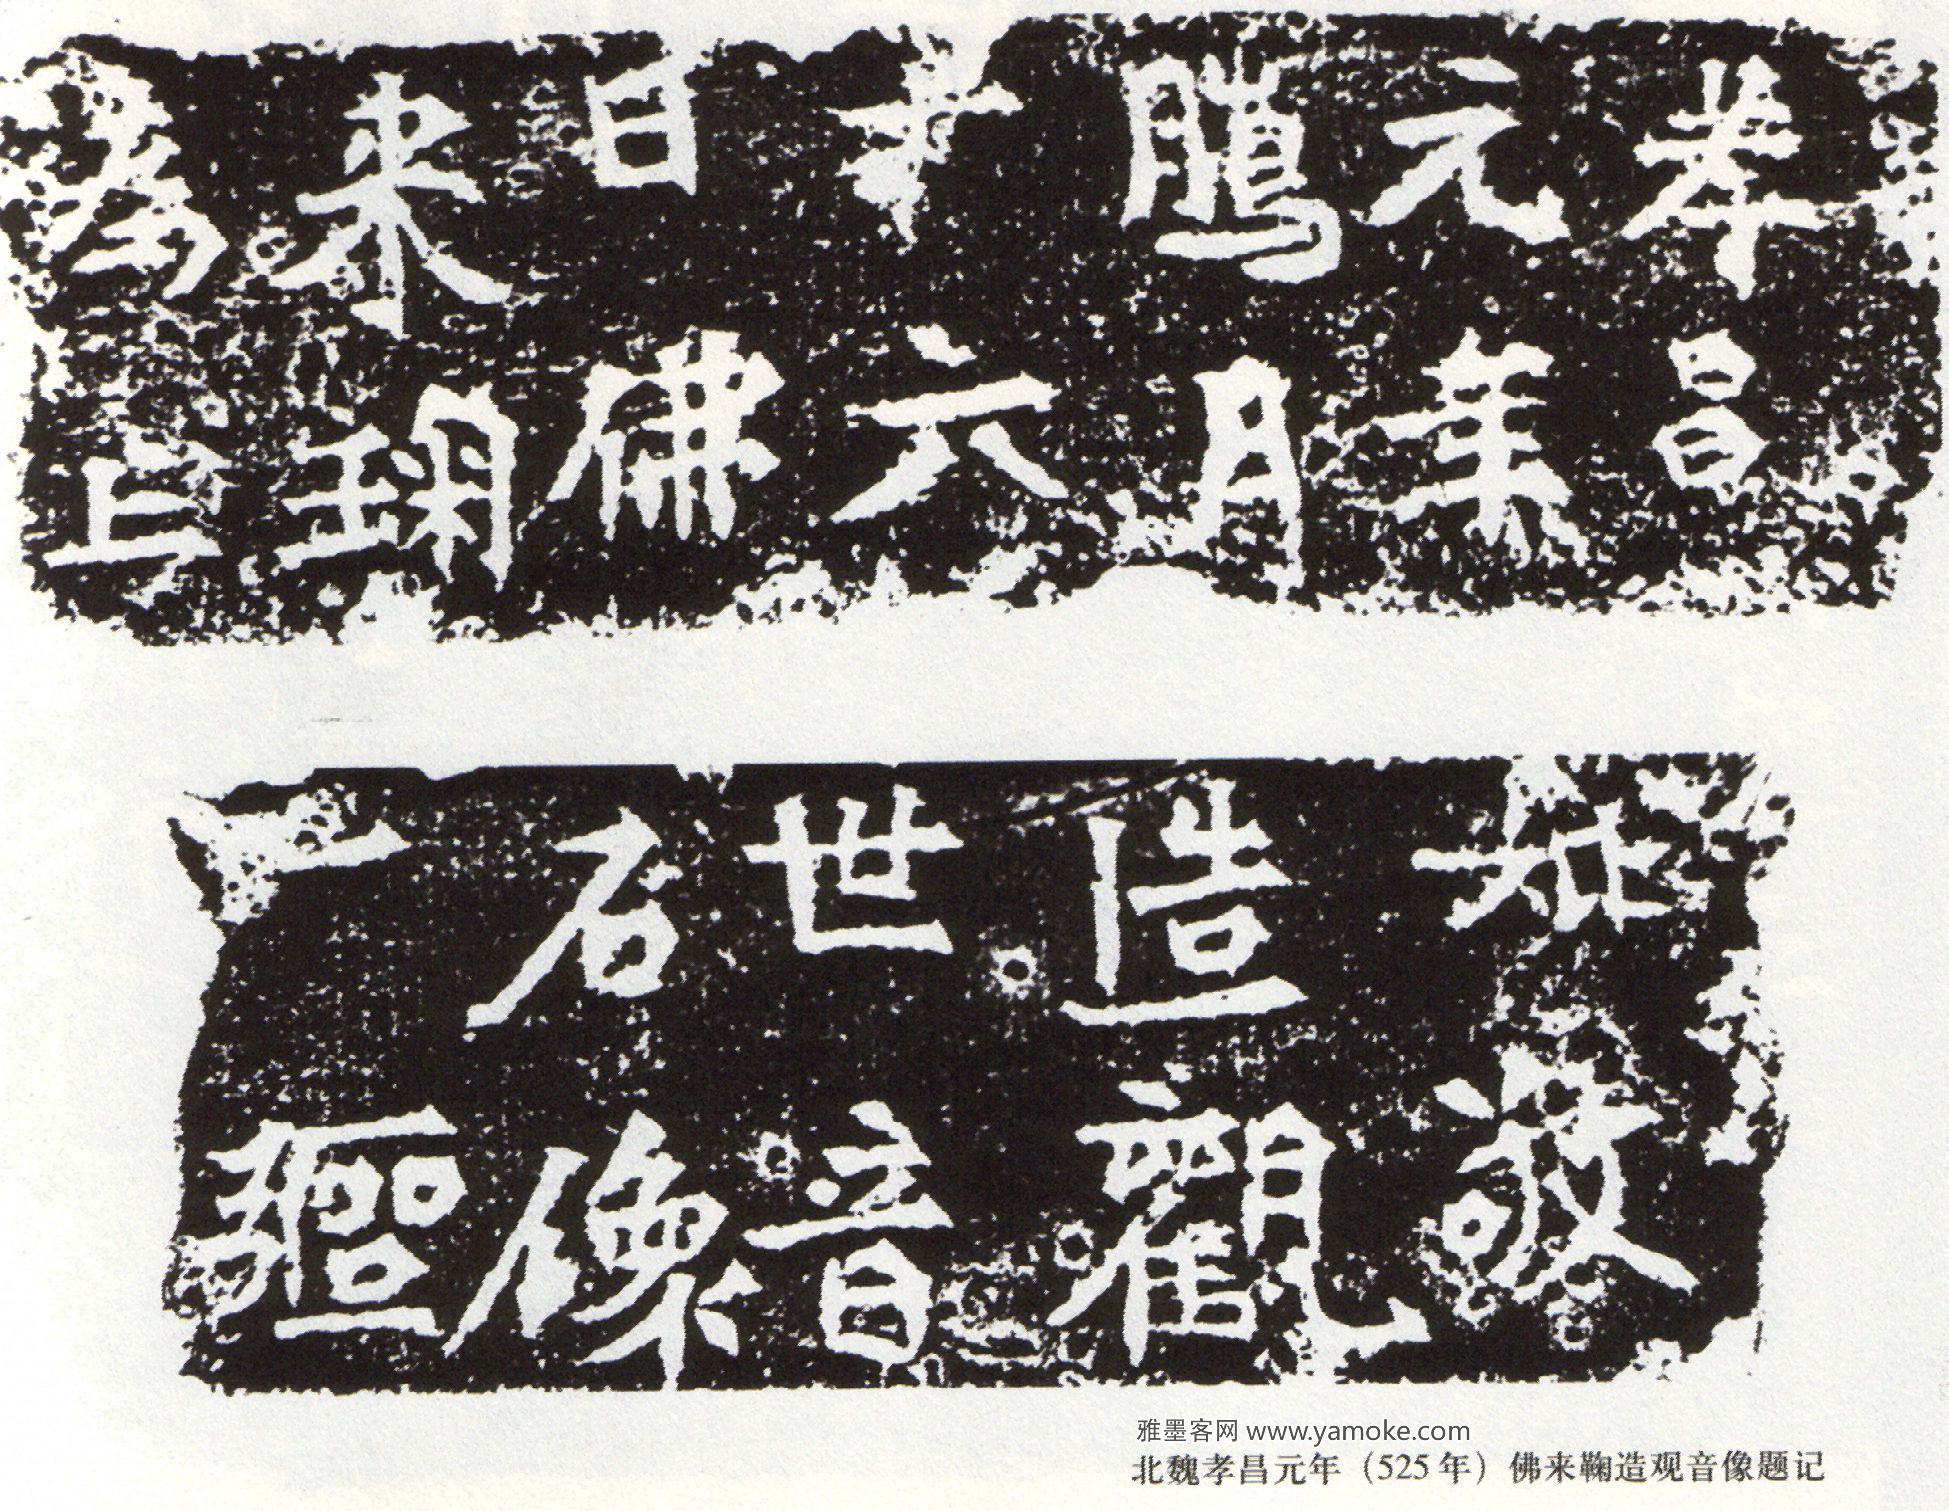 孝昌
元年
月
十六
日佛
来
為上
敬
造觀
世音
石像
一軀
雅墨客网 www.yamoke.com
北魏孝昌元年（525年）佛来鞠造观音像题记